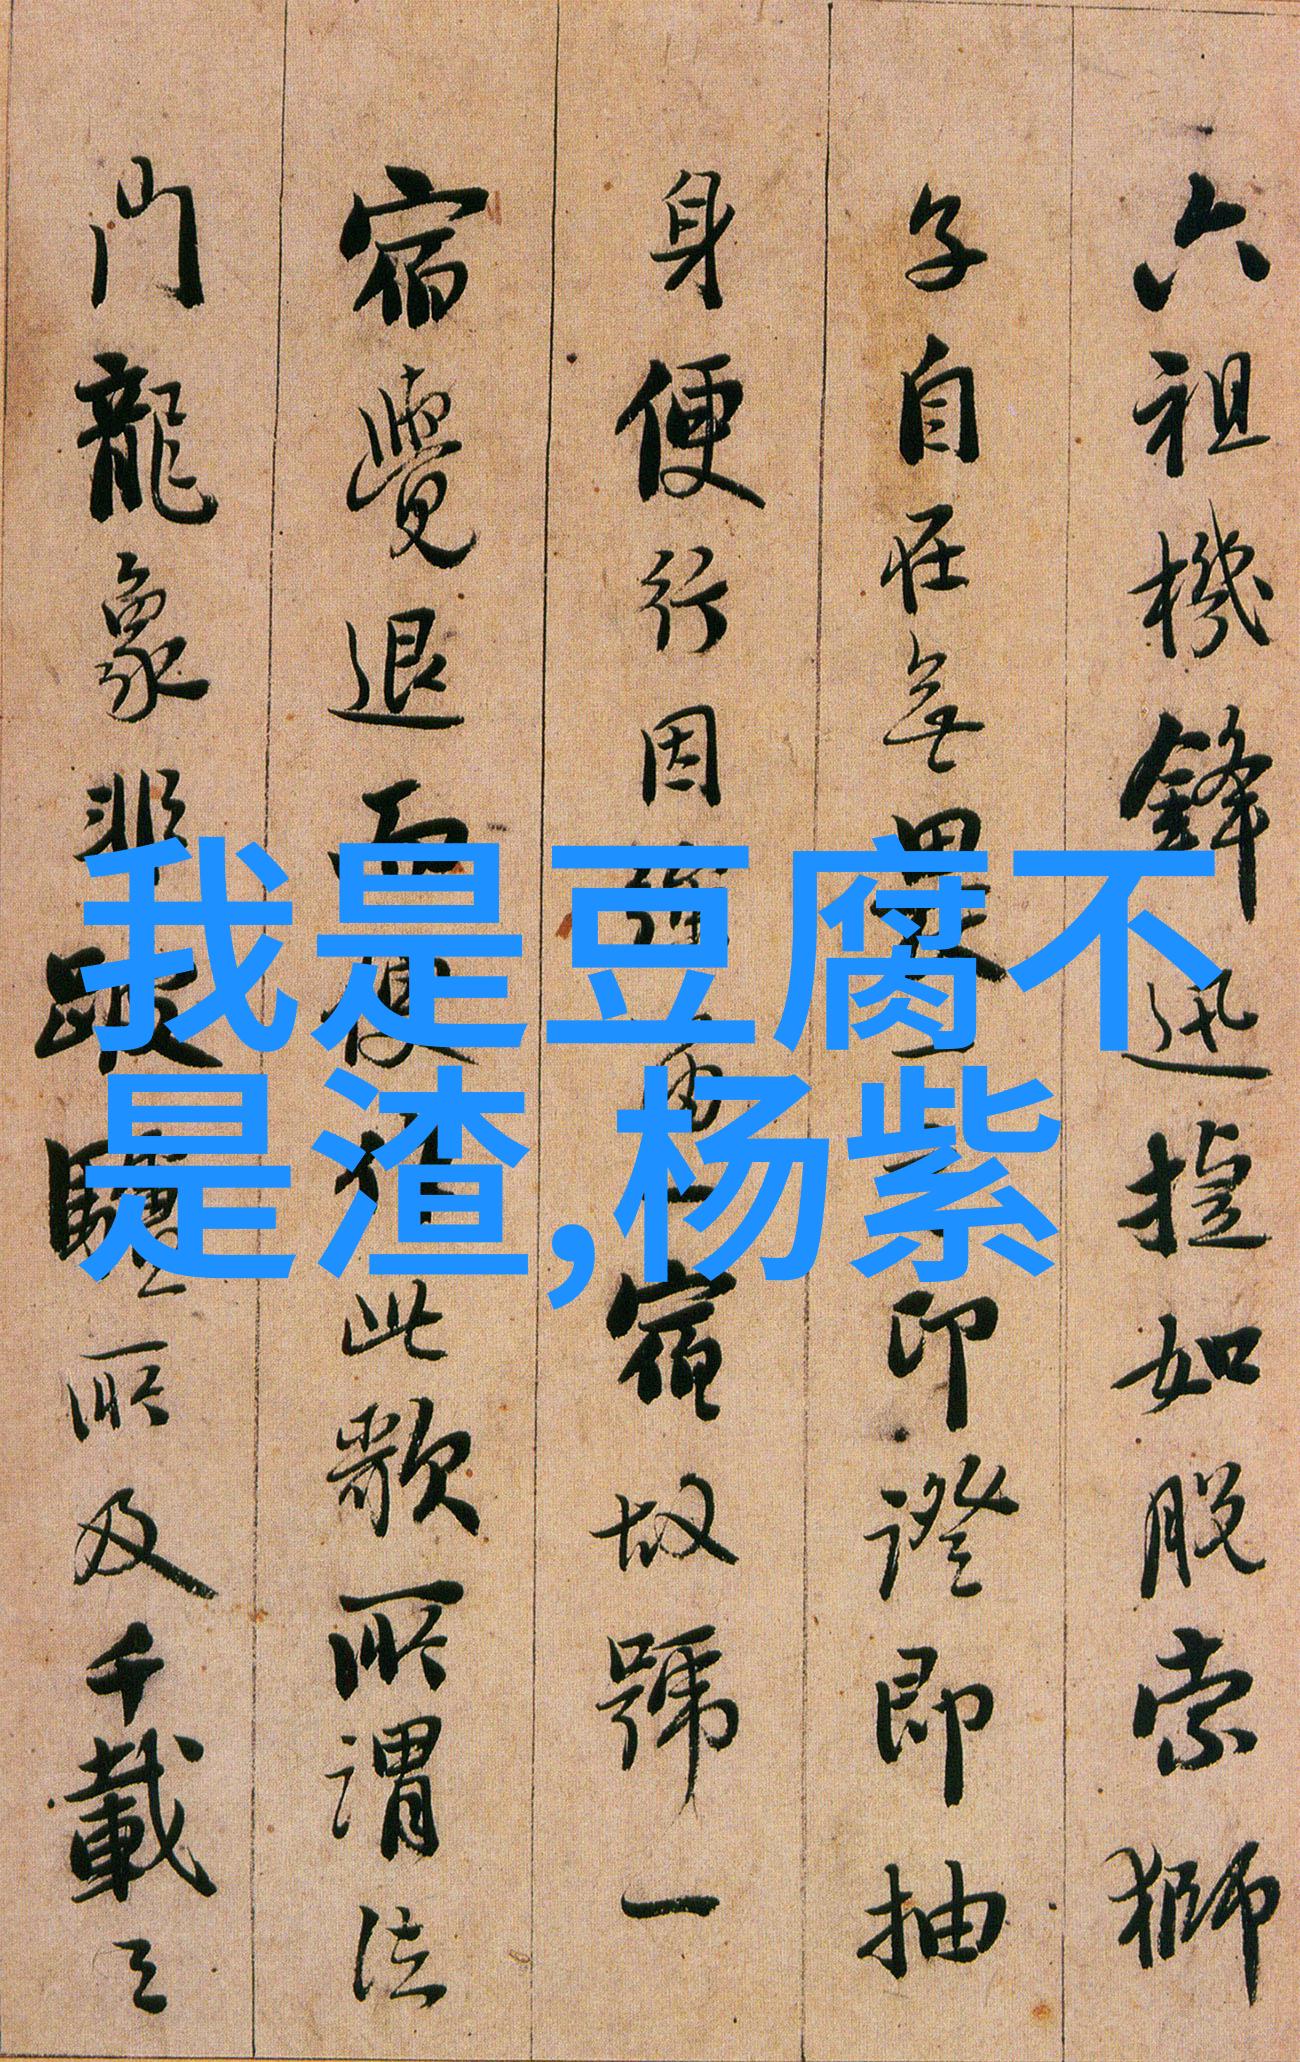 我是豆腐不
是渣,杨紫
六祖機鋒迅捷如脫索獅
子自在無畏印證即抽
身便行因宿故號一
宿覺退而便作此歌所謂法
門龍象非驢所及千載之